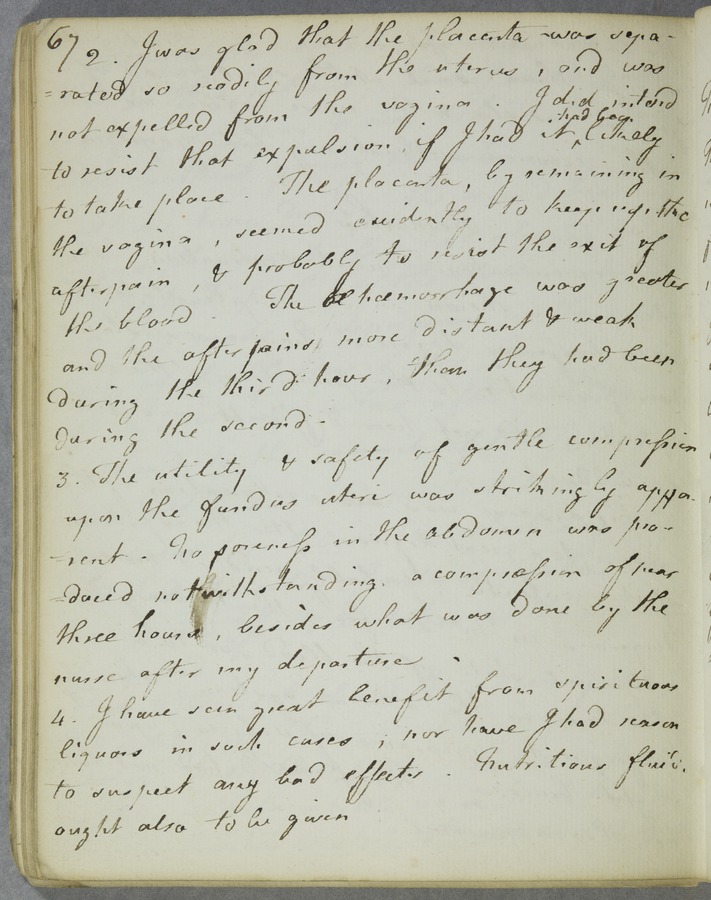 67 2. I was glad that the placenta was sepa-
=rated so readily from the uterus, and was
not expelled from the vagina. I did intend
to resist that expulsion, if I had it ^had been likely
to take place. The placenta, by remaining in
the vagina, seemed evidently to keep up the
afterpain, & probably to resist the exit of
the blood. The hæmorrhage was greater
and the after pains, more distant & weak
During the third hour, than they had been
during the second.
3. The utility & safety of gentle compression
upon the fundus uteri was strikingly appa-
=rent. No soreness in the abdomen was pro-
=duced notwithstanding a compression of near
three hours, besides what was done by the
nurse after my departure.
4. I have seen great benefit from spirituous
liquors in such cases; nor have I had reason
to suspect any bad effects. Nutritious fluids
ought also to be given